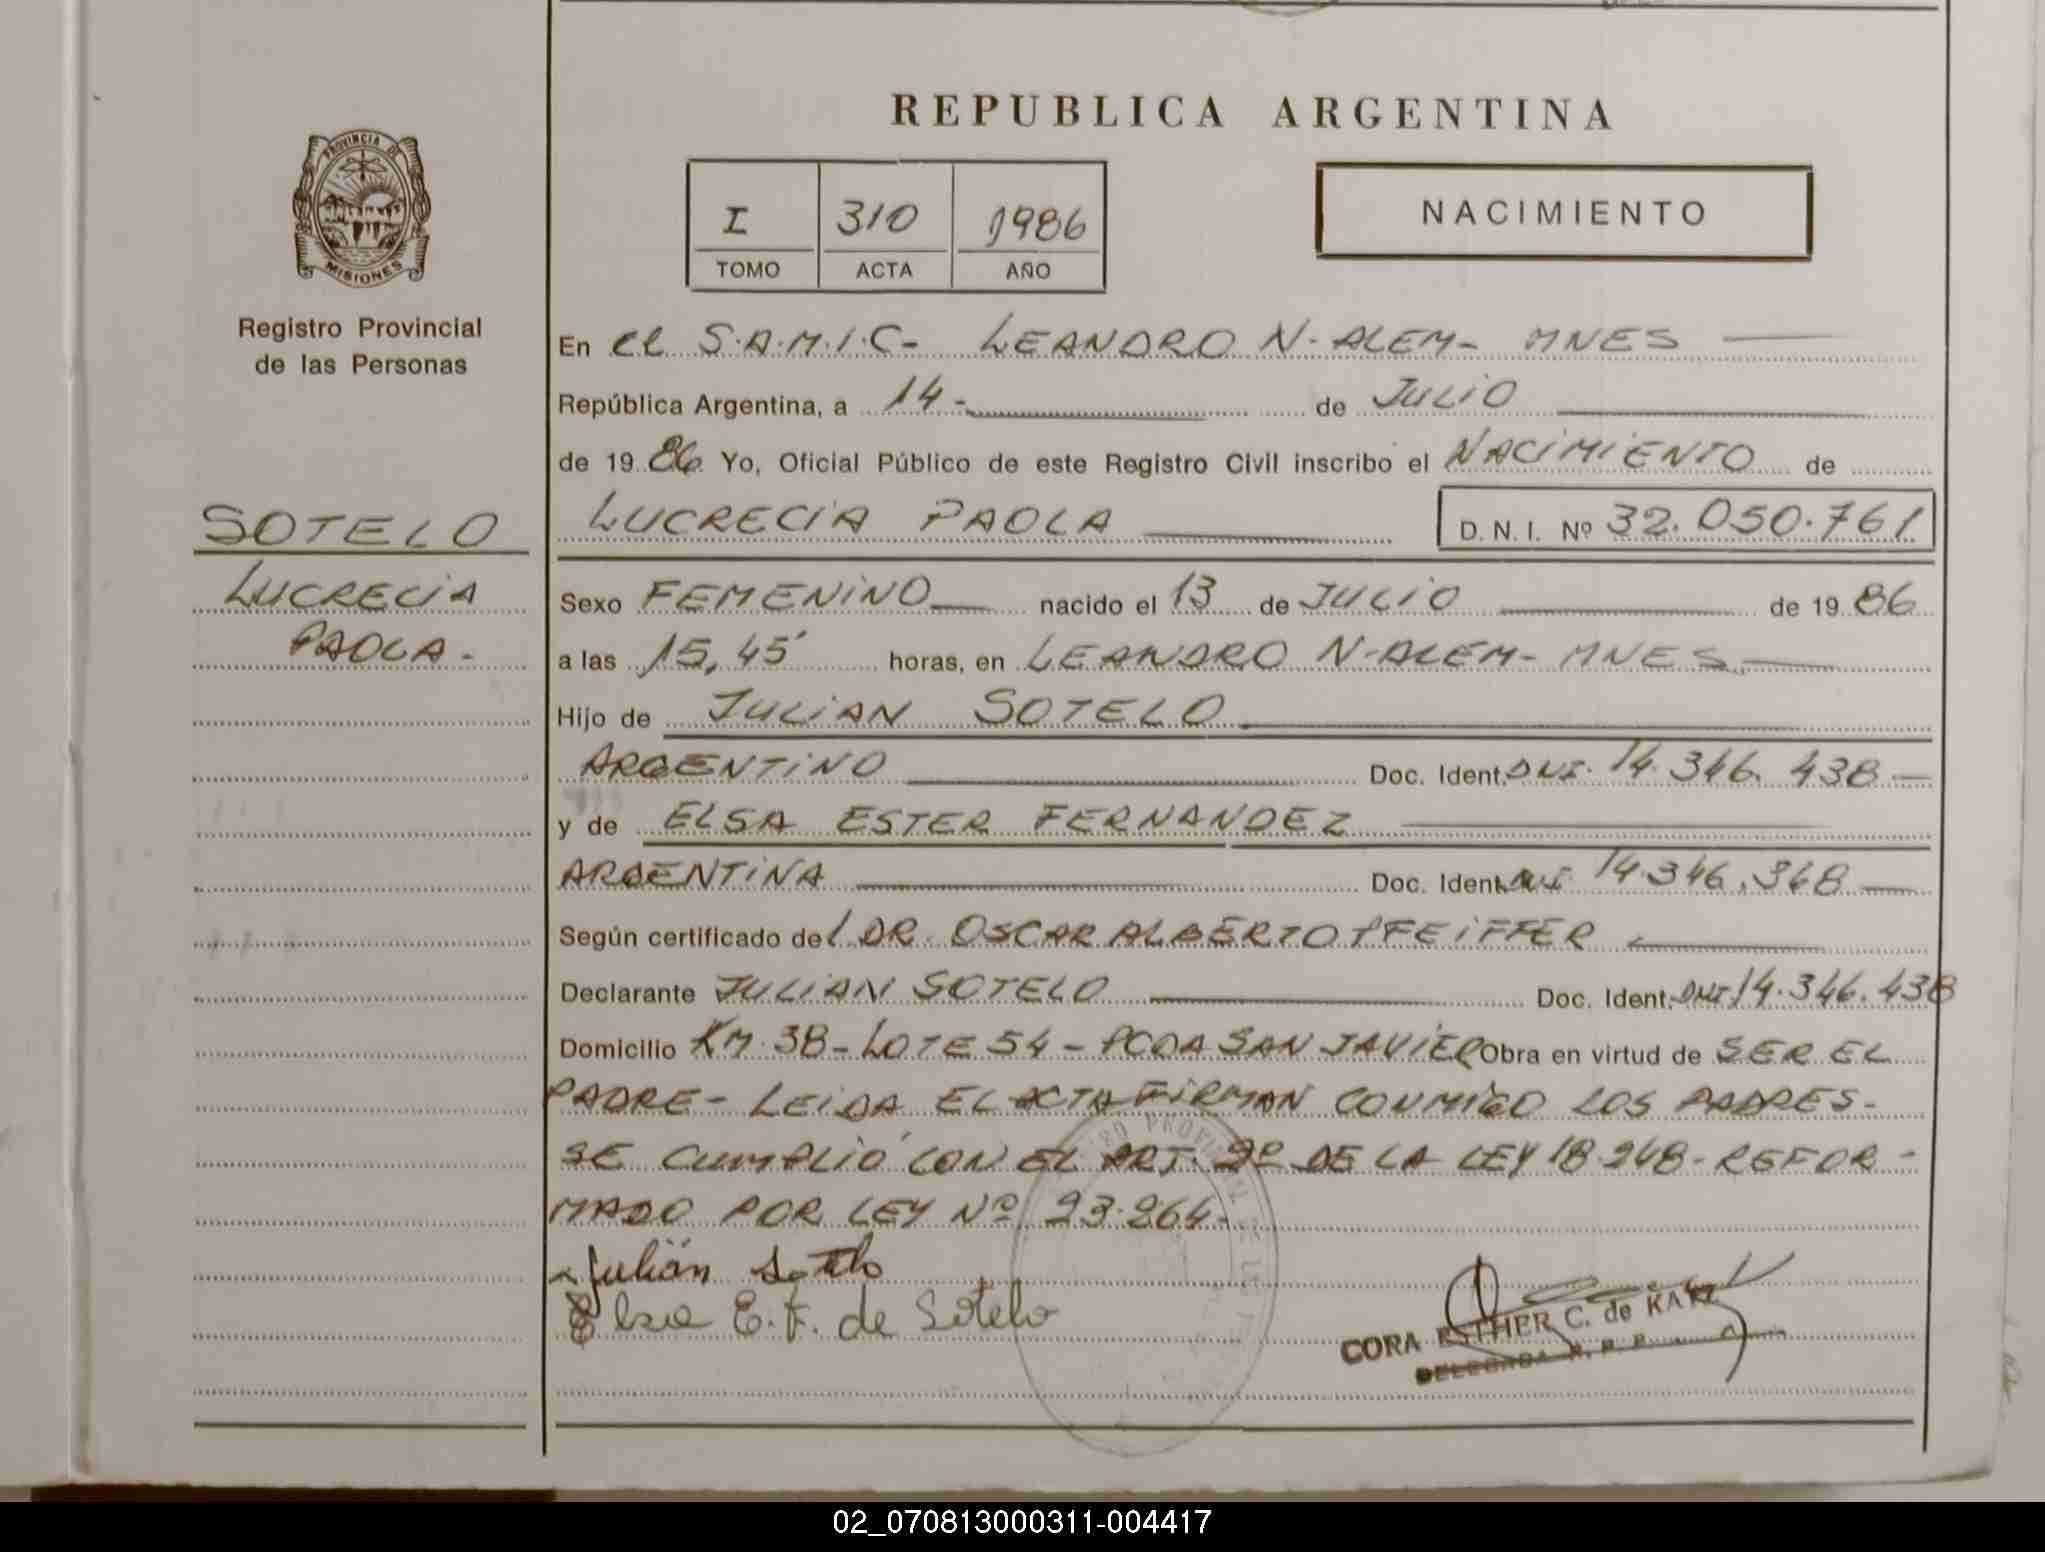 REPUBLICA ARGENTINA
PROVINCIA DE
MISIONES
Registro Provincial
de las Personas
I 310 1986
TOMO ACTA AÑO
NACIMIENTO
En el S.A.M.I.C- LEANDRO N-ALEM- MNES
República Argentina, a 14- de JULIO
de 1986 Yo, Oficial Público de este Registro Civil inscribo el NACIMIENTO de
LUCRECIA PAOLA D. N. I. Nº 32.050.761
SOTELO
LUCRECIA
PAOLA-
Sexo FEMENINO nacido el 13 de JULIO de 1986
a las 15,45' horas, en LEANDRO N-ALEM- MNES
Hijo de JULIAN SOTELO
ARGENTINO Doc. Ident. DNI. 14.346.438
y de ELSA ESTER FERNANDEZ
ARGENTINA Doc. Ident. DNI 14.346.368
Según certificado del DR. OSCAR ALBERTO PFEIFFER
Declarante JULIAN SOTELO Doc. Ident. DNI 14.346.438
Domicilio KM.38-LOTE 54-PCDA SAN JAVIER Obra en virtud de SER EL
PADRE- LEIDA EL ACTA FIRMAN CONMIGO LOS PADRES-
SE CUMPLIÓ CON EL ART. 2º DE LA LEY 18.248-REFOR-
MADO POR LEY Nº 23.264-
Julián Sotelo
Elsa E. F. de Sotelo
CORA ESTHER C. de
DELEGADA R. P. P.
02_070813000311-004417